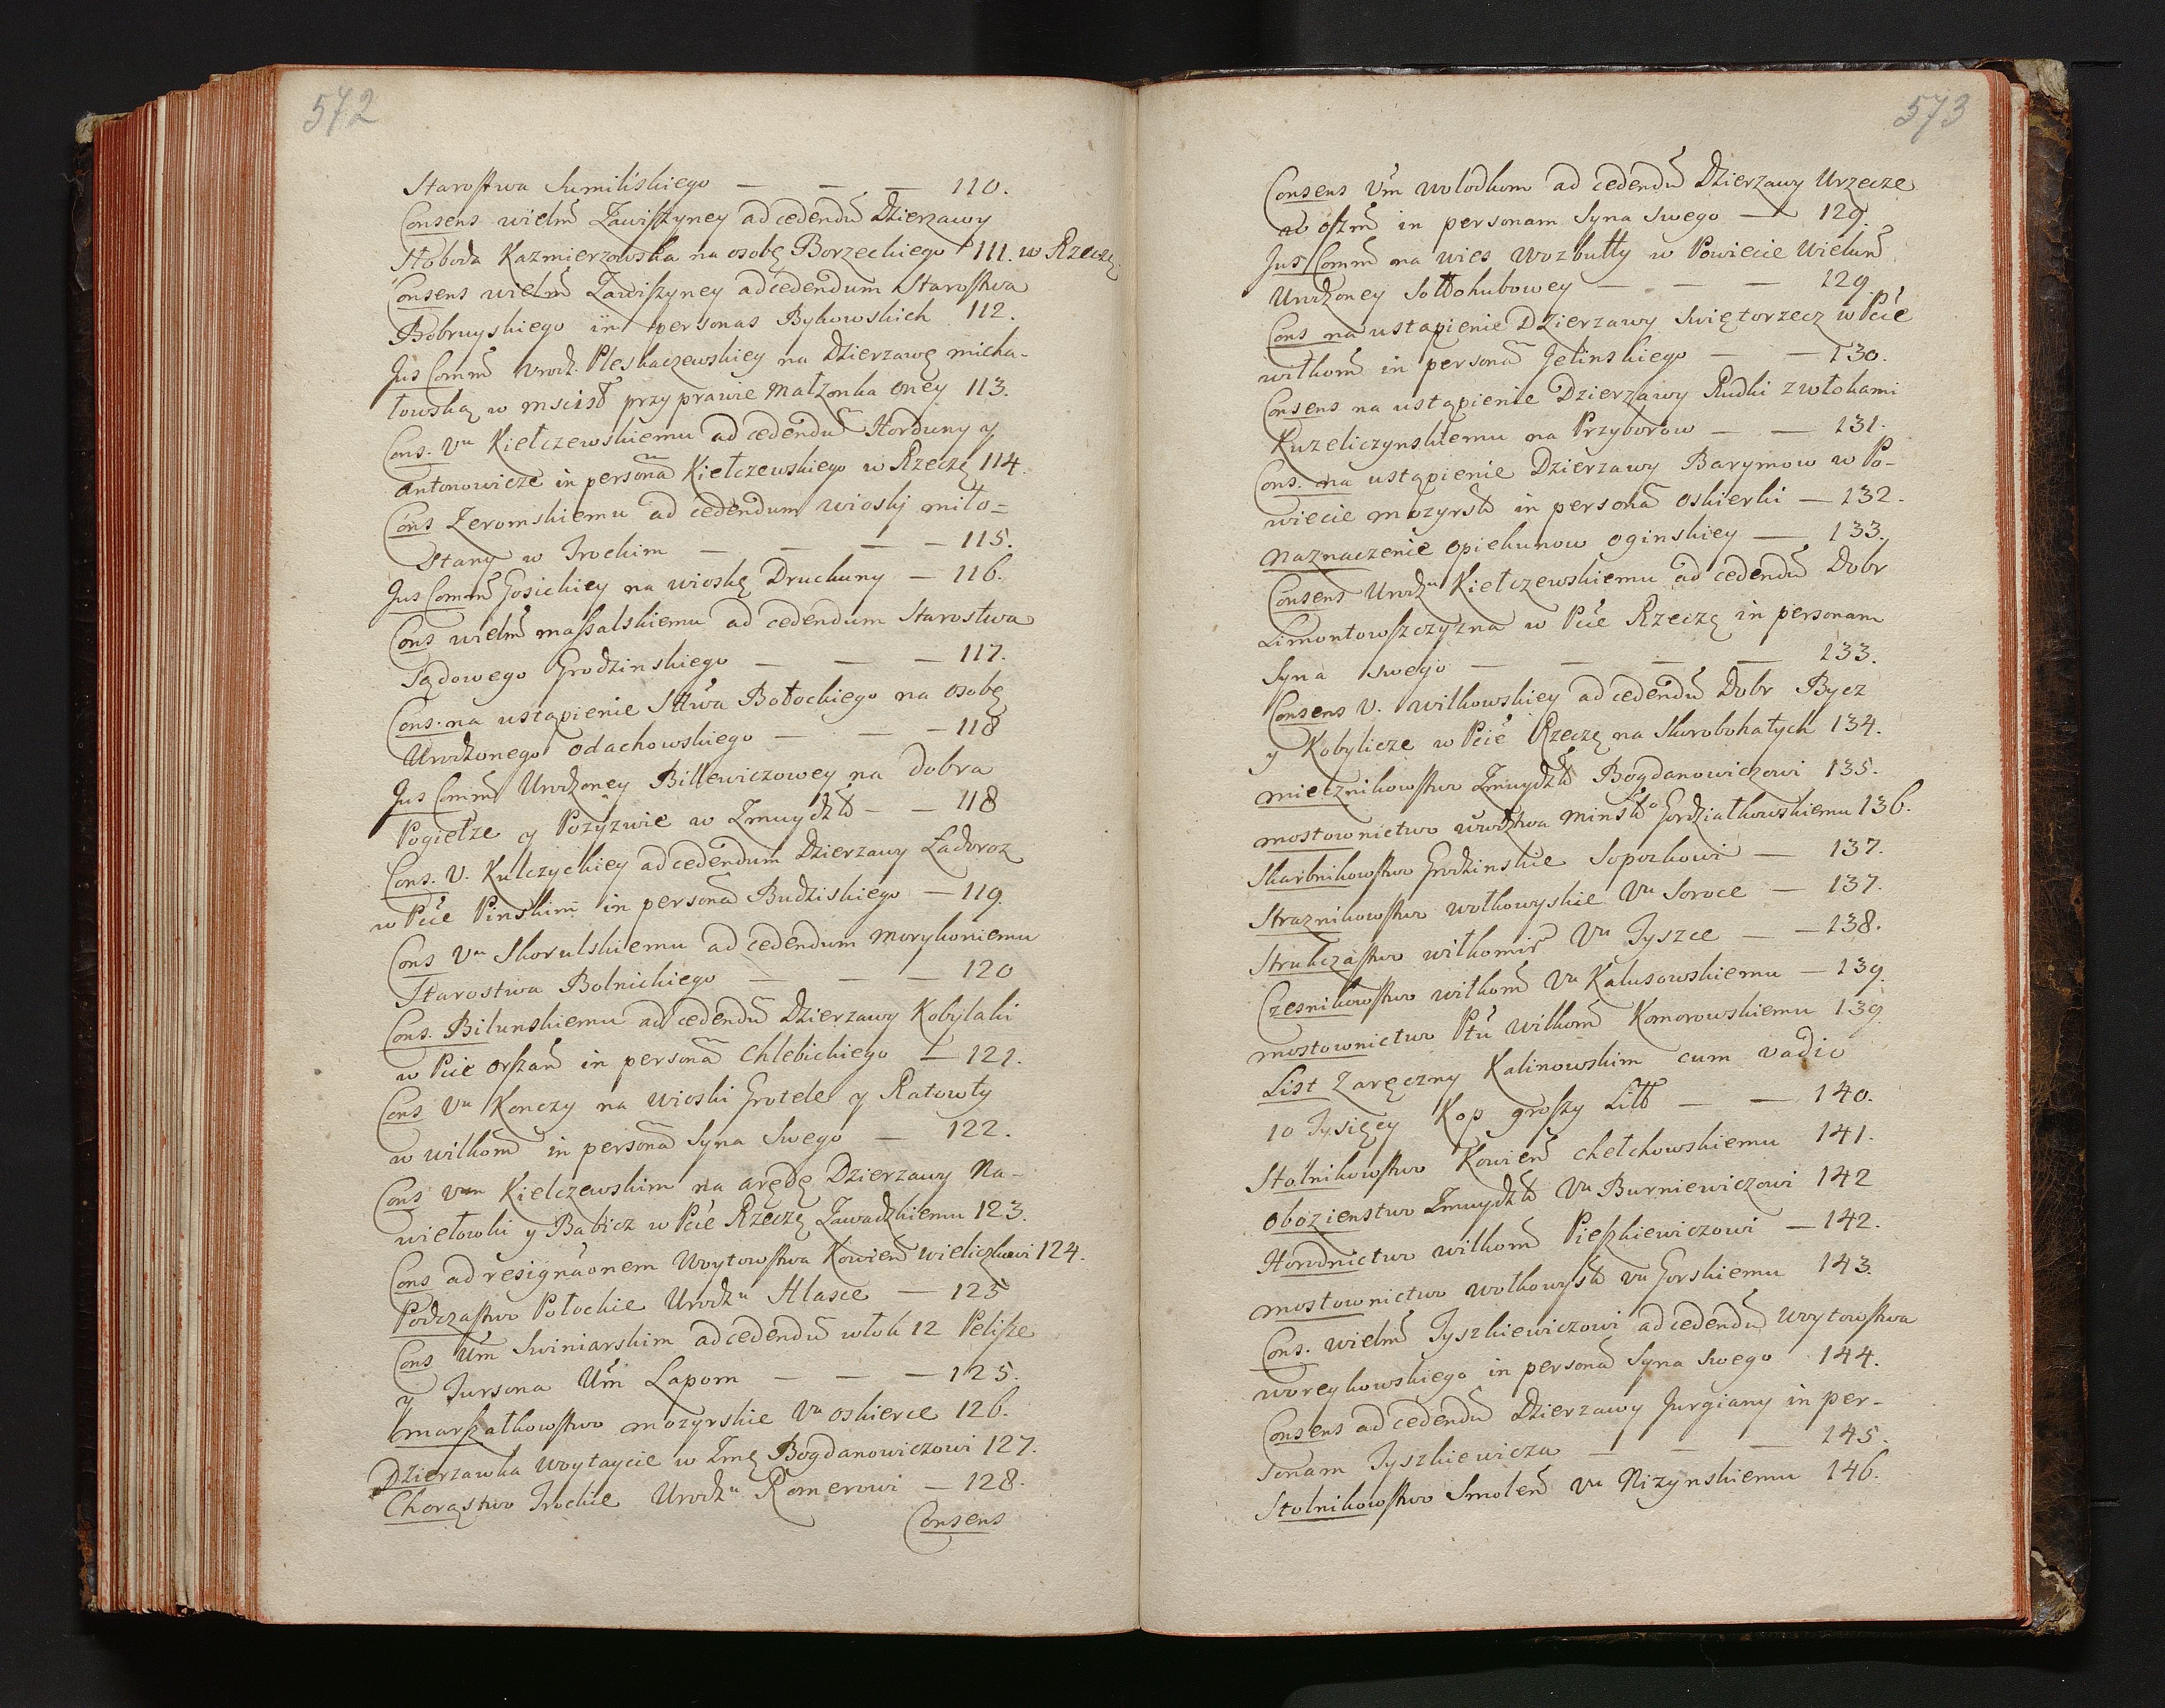 572
Starostwa Sumiliskiego — — — 110.
Consens wielm Zawiszyney ad cedendu Dzierzawy
Słoboda Kazmierzowska na osobę Borzeckiego 111. w Rzeczę
Consens wielm Zawiszyney ad cedendum Starostwa
Bobruyskiego in personas Bykowskich 112.
Jus Comm Urodz. Pleskaczewskiey na Dzierzawę micha-
łowską w mscisł przy prawie Małzonka oney 113.
Cons. Vu Kiełczewskiemu ad cedendu Horduny y
Antonowicze in persona Kiełczewskiego w Rzeczę 114.
Cons Zeromskiemu ad cedendum wioski miło=
Stany w Trockim — — — 115.
Jus Comm Gosickiey na wioskę Druckuny — 116.
Cons wielm massalskiemu ad cedendum Starostwa
Sądowego Grodzinskiego — — — 117.
Cons. na ustąpienie Sttwa Botockiego na osobę
Urodzonego Odachowskiego — — — 118
Jus Comm Urodzoney Billewiczowey na Dobra
Pogiełze y Pozyzwie w Zmuydz — — 118
Cons. V. Kulczyckiey ad cedendum Dzierzawy Ładoroz
w Pcie Pinskim in persona Budziskiego — 119.
Cons Vu Skorulskiemu ad cedendum Morykoniemu
Starostwa Bolnickiego — — — 120
Cons. Bilunskiemu ad cedendu Dzierzawy Kobylaki
w Pcie orszan in persona Chlebickiego — 121.
Cons Vu Konczy na wioski Grotele y Ratowty
w wilkom in persona Syna Swego — 122.
Cons Vm Kielczewskim na arędę Dzierzawy Na-
wiełowki y Babicz w Pcie Rzeczę Zawadzkiemu 123.
Cons ad resignaonem Woytowstwa Kowien wieliczkowi 124.
Podczastwo Połockie Urodzu Hlasce — 125
Cons Um Swiniarskim ad cedendu włok 12 Pelisze
y Jursona Um Lapom — — — 125.
marszałkowstwo mozyrskie Vu oskierce 126.
Dzierzawka Woytaycie w Zmę Bogdanowiczowi 127.
Chorąstwo Trockie Urodzu Romerowi — 128.
Consens
573
Consens Um Wolodkom ad cedendu Dzierzawy Urzecze
w oszm in personam Syna Swego — 129.
Jus Comm na wies Wozbutty w Powiecie Wielun
Urodzoney Sołłohubowey — — — 129.
Cons na ustąpienie Dzierzawy Swiętorzecz w Pcie
wiłkom in persona Jelinskiego — — 130.
Consens na ustąpienie Dzierzawy Rudki z włokami
Kuzeliczynskiemu na Przyborow — — 131.
Cons. na ustąpienie Dzierzawy Barymow w Po-
wiecie mozyrs in persona oskierki — 132.
Naznaczenie opiekunow oginskiey — 133.
Consens Urodzu Kiełczewskiemu ad cedendu Dobr
Limontowszczyzna w Pcie Rzeczę in personam
Syna swego — — — — 133.
Consens V. wilkowskiey ad cedendu Dobr Bycz
y Kobylicze w Pcie Rzeczę na Skorobohatych 134.
Miecznikowstwo Zmuydz Bogdanowiczowi 135.
mostownictwo Wwdztwa Mins Gordziałkowskiemu 136.
Skarbnikowstwo Grodzinskie Sopockowi — 137.
Straznikowstwo wołkowyskie Vu Soroce — 137.
Strukczastwo wilkomir Vu Tyszce — — 138.
Czesnikowstwo wiłkom Vu Kalusowskiemu — 139.
mostownictwo Ptu wilkom Komorowskiemu 139
List Zaręczny Kalinowskim cum vadio
10 Tysięcy Kop groszy Litt — — 140.
Stolnikowstwo Kowien Chełchowskiemu 141.
Obozienstwo Zmuydz Vu Burniewiczowi 142
Horodnictwo wilkom Pieszkiewiczowi — 142.
mostownictwo wołkowys Vu Gorskiemu 143.
Cons. wielm Tyszkiewiczowi ad cedendu Woytowstwa
woreykowskiego in persona Syna Swego 144.
Consens ad cedendu Dzierzawy Jurgiany in per-
sonam Tyszkiewicza — — — 145.
Stolnikowstwo Smolen Vu Nizynskiemu 146.